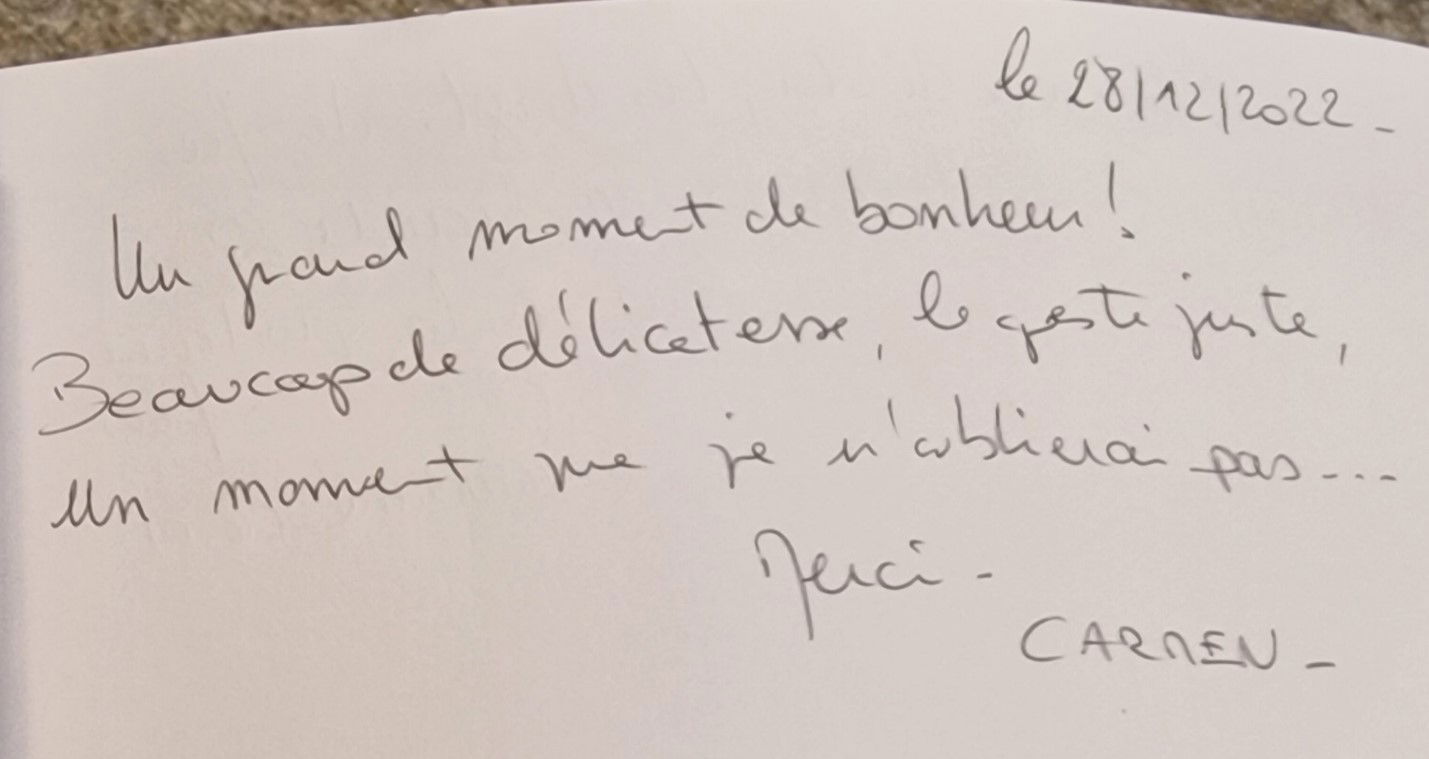 le 28/12/2022 -
Un grand moment de bonheur !
Beaucoup de délicatesse, le geste juste,
un moment que je n'oublierai pas ---
Merci -
CARMEN -